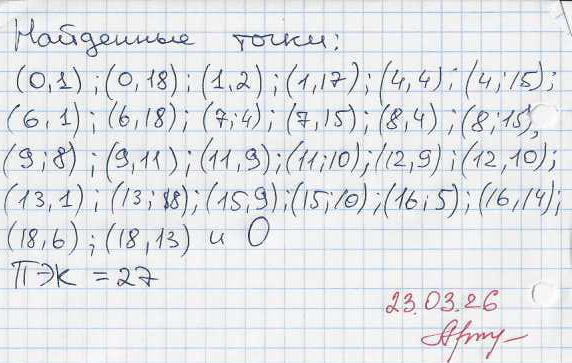 Найденные точки:
(0,1); (0,18); (1,2); (1,17); (4,4); (4;15);
(6,1); (6,18); (7;4); (7,15); (8,4); (8;15);
(9;8); (9,11); (11,9); (11;10); (12,9); (12,10);
(13,1); (13;18); (15,9); (15;10); (16;5); (16,14);
(18,6); (18,13) и O
ПЭК = 27
23.03.26